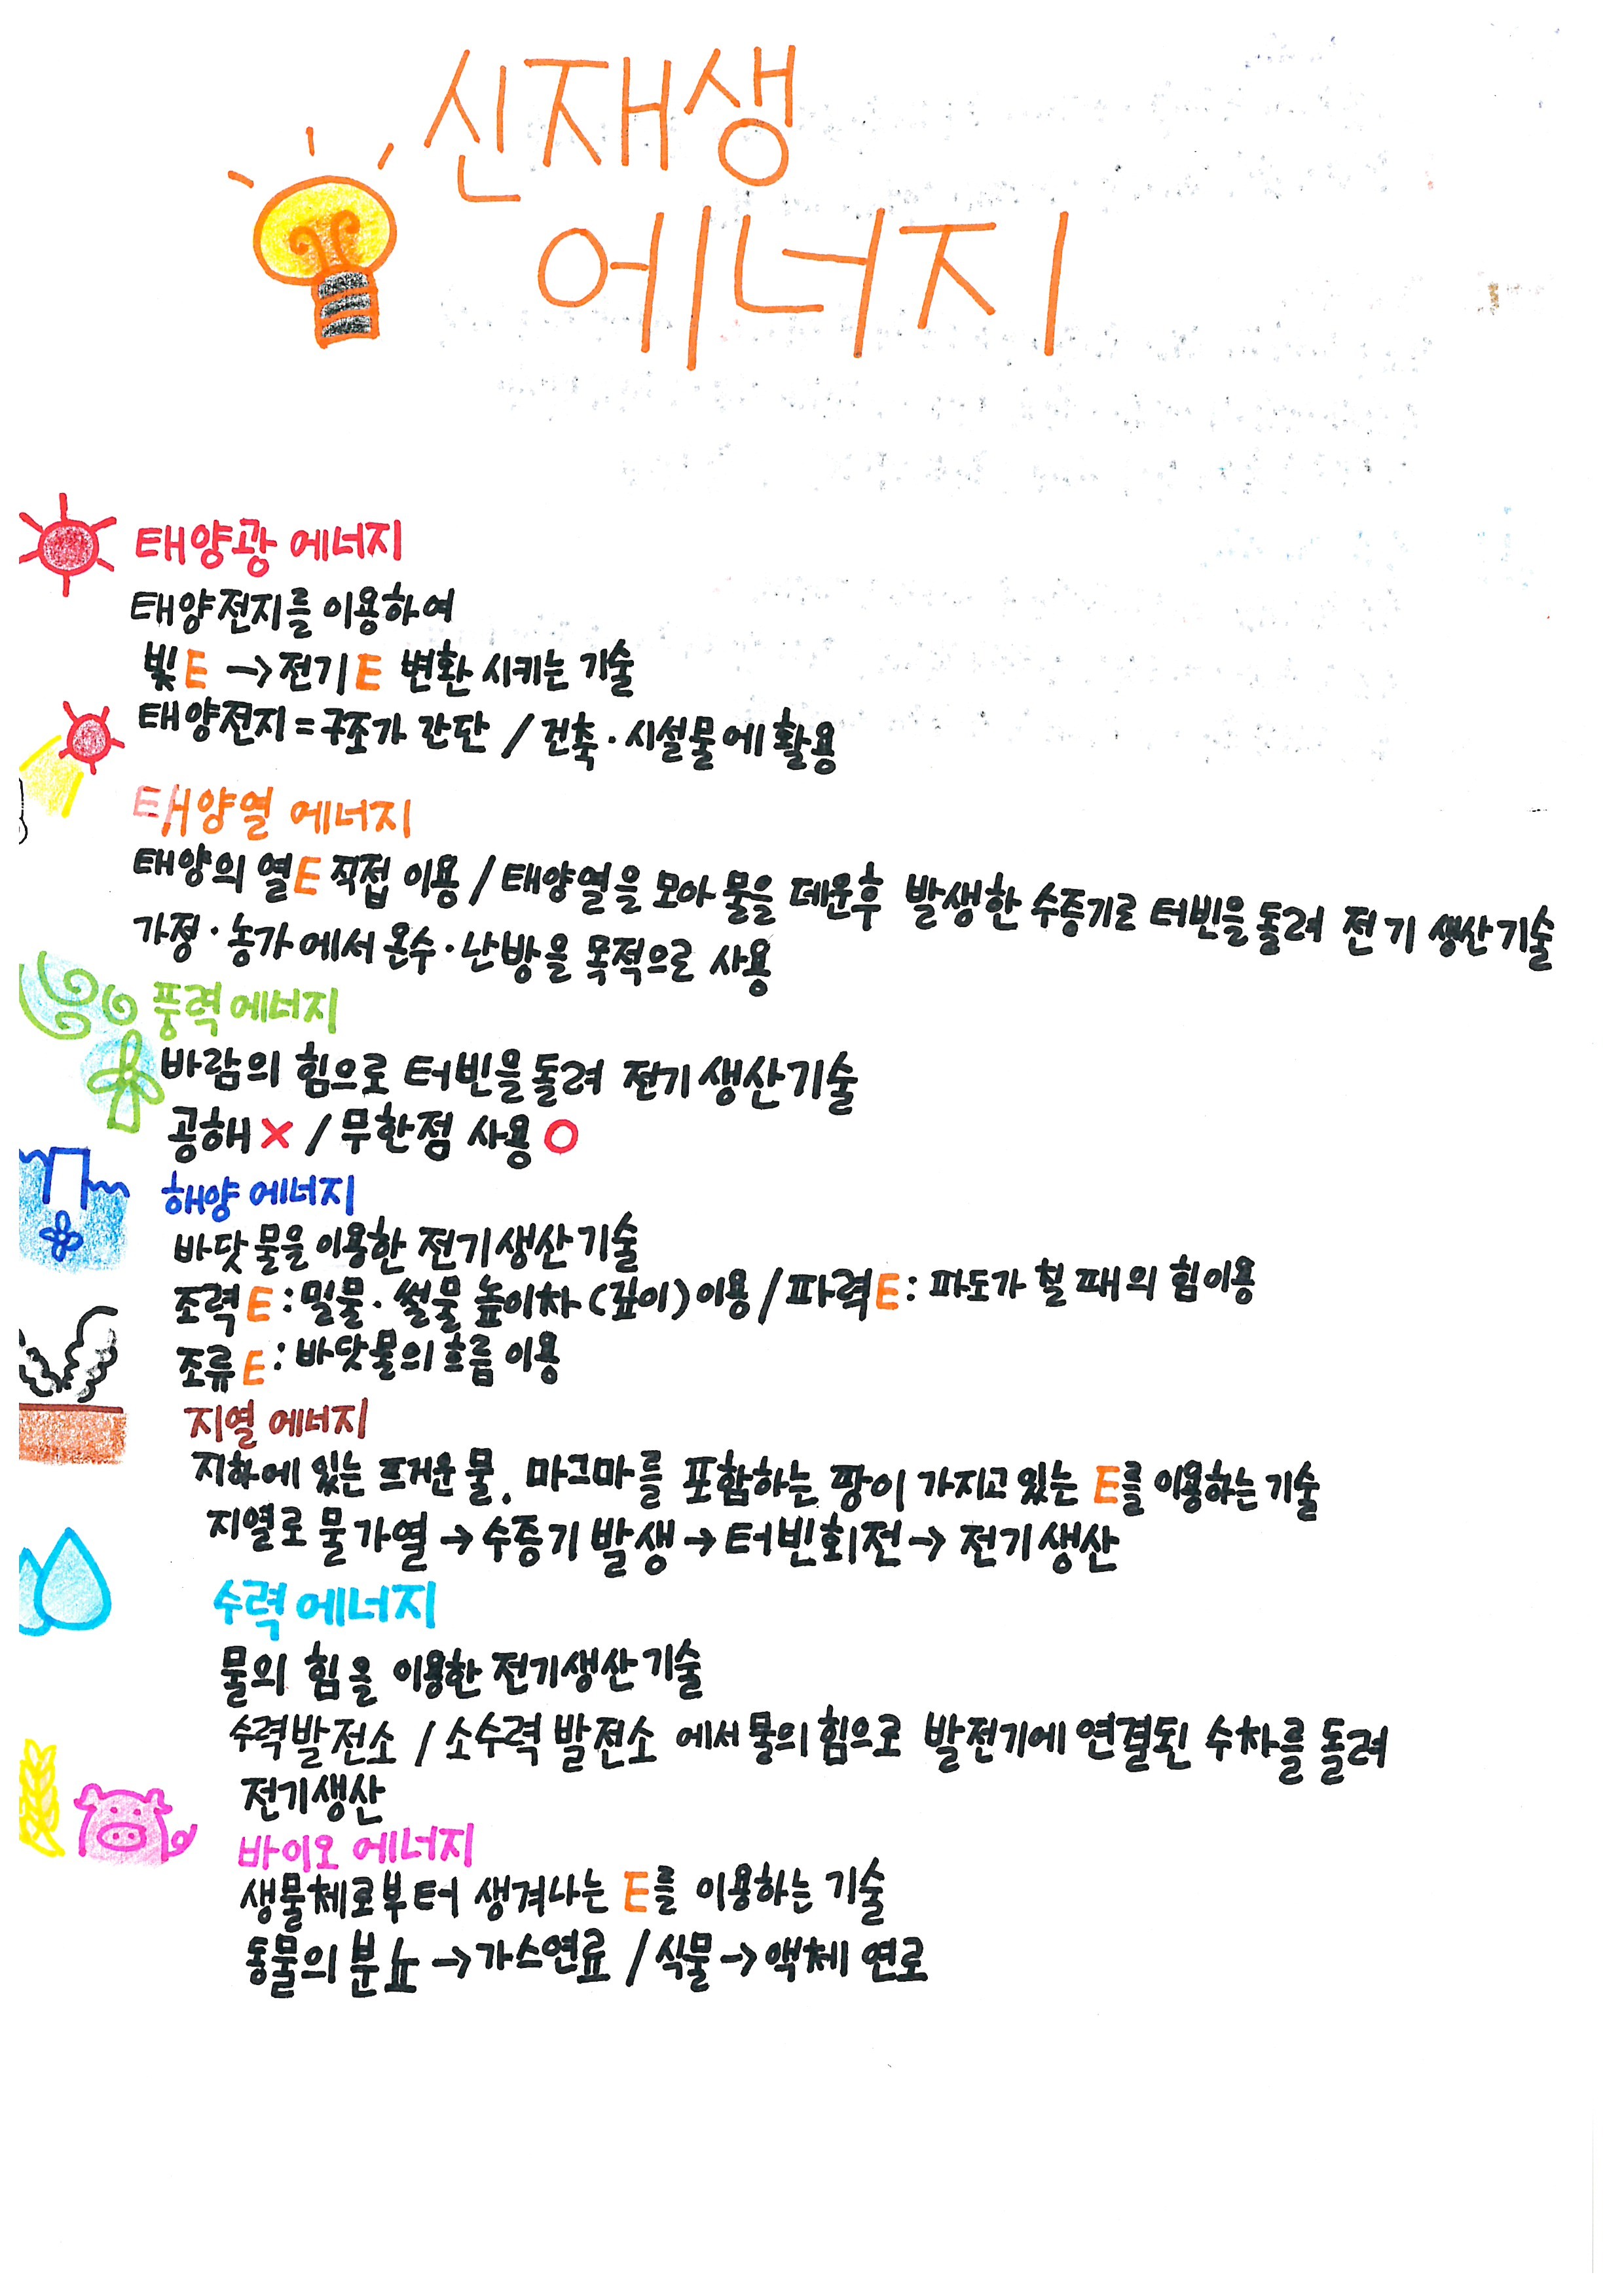 신재생
에너지
태양광 에너지
태양전지를 이용하여
빛E → 전기E 변환 시키는 기술
태양전지 = 구조가 간단 / 건축·시설물에 활용
태양열 에너지
태양의 열E 직접 이용 / 태양열을 모아 물을 데운후 발생한 수증기로 터빈을 돌려 전기 생산기술
가정·농가에서 온수·난방을 목적으로 사용
풍력에너지
바람의 힘으로 터빈을돌려 전기생산기술
공해 X / 무한점 사용 O
해양 에너지
바닷물을 이용한 전기생산기술
조력E : 밀물·썰물 높이차(깊이)이용 / 파력E : 파도가 칠 때의 힘이용
조류E : 바닷물의 흐름 이용
지열 에너지
지하에 있는 뜨거운 물, 마그마를 포함하는 땅이 가지고 있는 E를 이용하는 기술
지열로 물 가열 → 수증기 발생 → 터빈회전 → 전기생산
수력 에너지
물의 힘을 이용한 전기생산기술
수력발전소 / 소수력 발전소 에서 물의 힘으로 발전기에 연결된 수차를 돌려
전기생산
바이오 에너지
생물체로부터 생겨나는 E를 이용하는 기술
동물의 분뇨 → 가스연료 / 식물 → 액체 연로